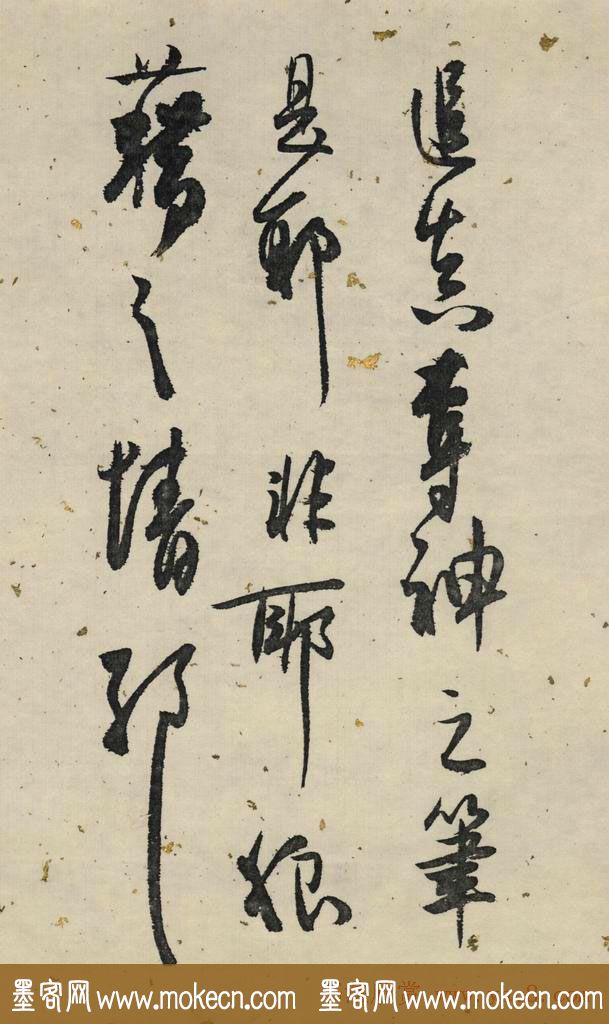 逼真奪神之筆
是耶非耶狼
藉之情形
墨客网 www.mokecn.com 墨客网 www.mokecn.com